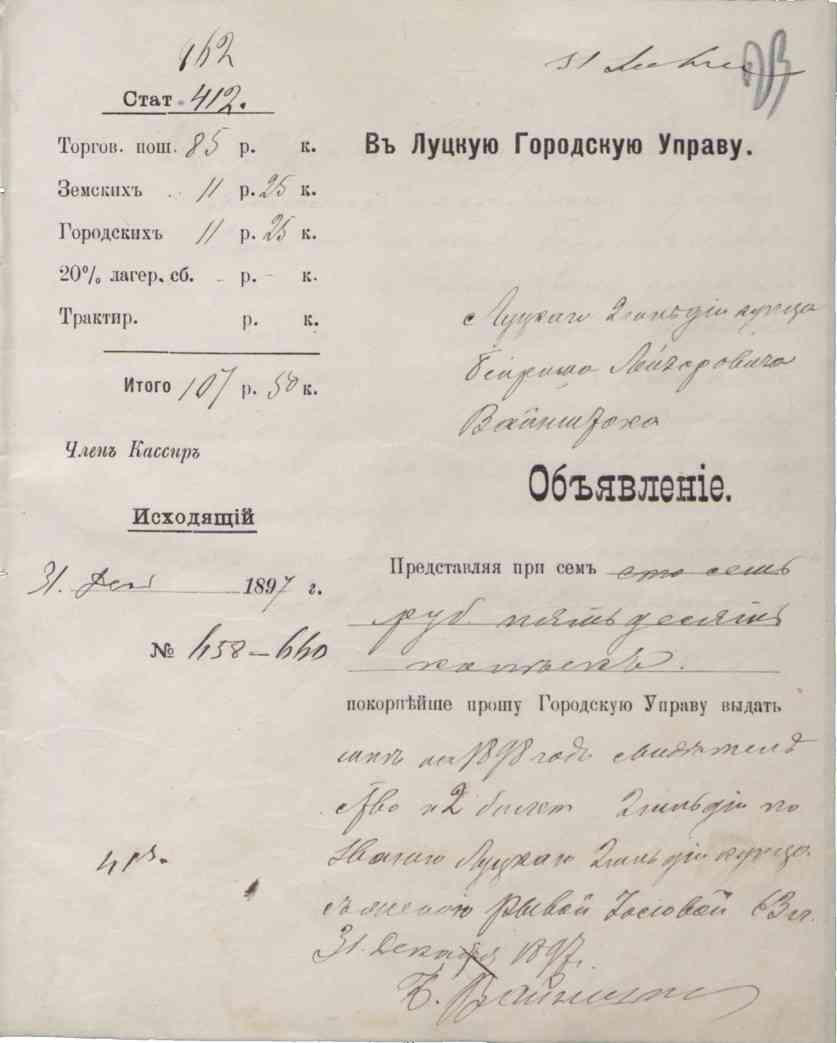 162
31 Декабря
Стат. 412.
Торгов. пош. 85 р. к.
Земскихъ 11 р. 25 к.
Городскихъ 11 р. 25 к.
20% лагер. сб. - р. - к.
Трактир. р. к.
Итого 107 р. 50 к.
Членъ Кассиръ
Исходящій
31. Дек 1897 г.
№ 658-660
413.
Въ Луцкую Городскую Управу.
Луцкаго 2 гильдіи купца
Лейзеровича
Вайнштока
Объявленіе.
Представляя при семъ сто семь
руб. пятьдесятъ
копѣекъ.
покорнѣйше прошу Городскую Управу выдать
мнѣ на 1898 годъ свидѣтель
ство и 2 билет 2 гильдіи по
званію Луцкаго 2 гильдіи купца
съ женою Рывой 63 л.
31 Декабря 1897.
Вайншток